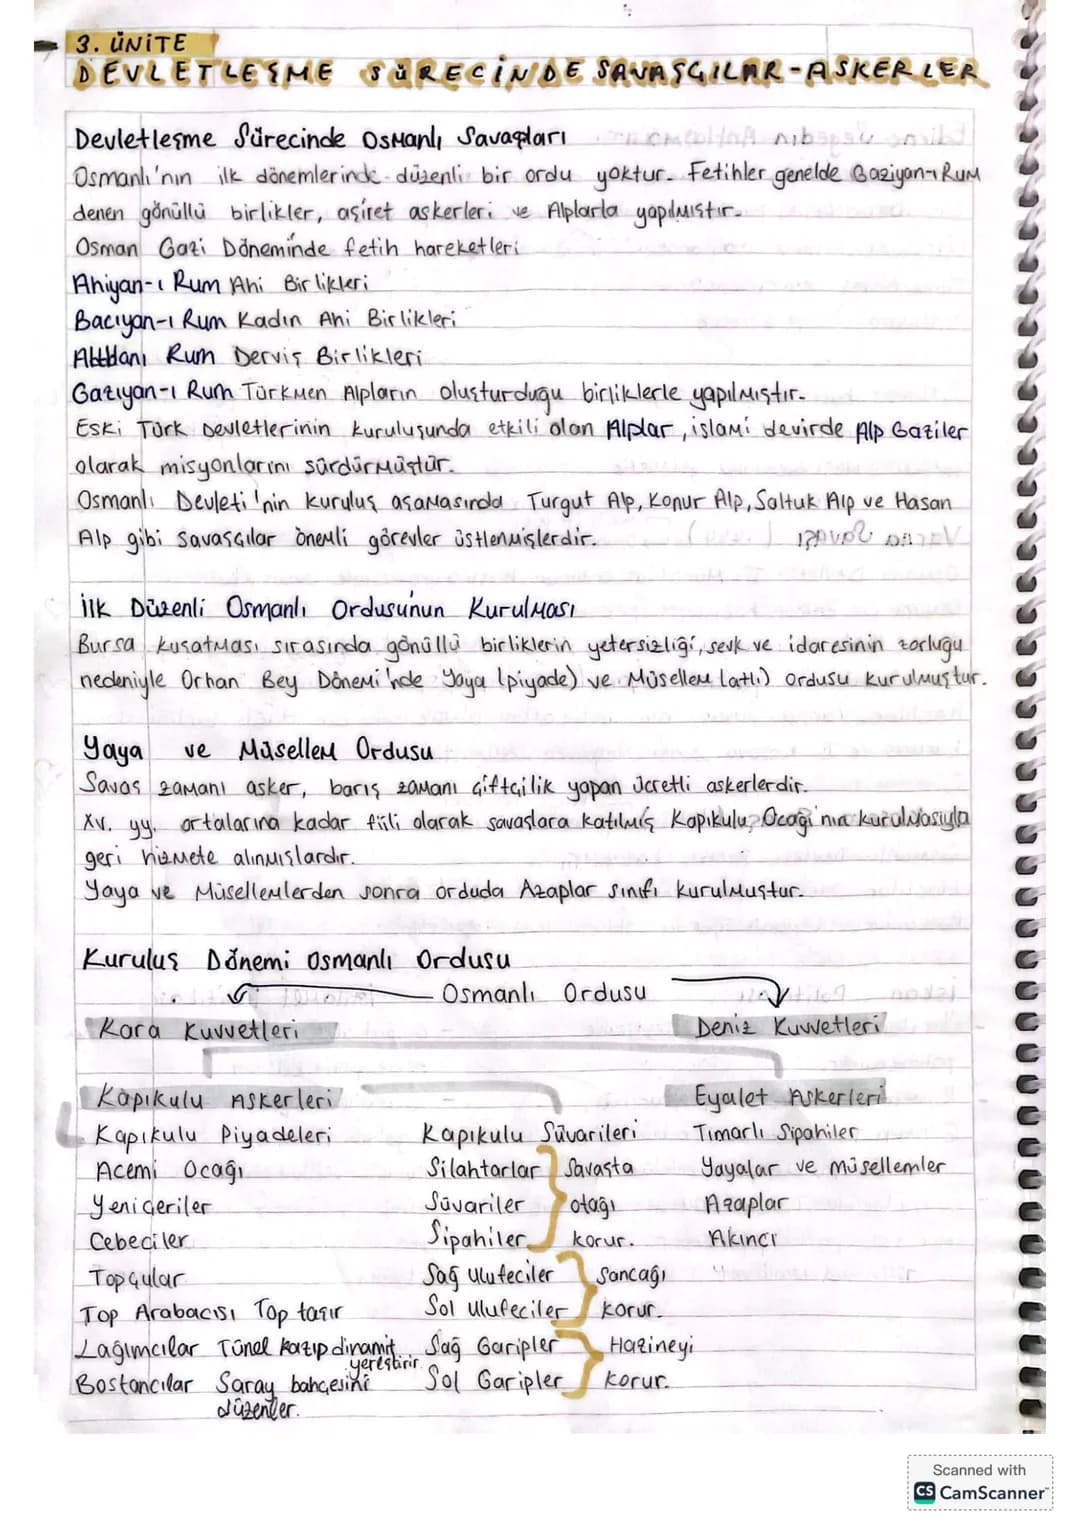 3. ÜNİTE
DEVLETLEŞME SÜRECİNDE SAVAŞÇILAR-ASKERLER
Devletleşme Sürecinde Osmanlı Savaşları
Osmanlı'nın ilk dönemlerinde düzenli bir ordu yoktur. Fetihler genelde Gaziyan-ı Rum
denen gönüllü birlikler, aşiret askerleri ve Alplarla yapılmıştır.
Osman Gazi Döneminde fetih hareketleri
Ahiyan-ı Rum Ahi Birlikleri
Bacıyan-ı Rum Kadın Ahi Birlikleri
Rum Derviş Birlikleri
Gazıyan-ı Rum Türkmen Alpların oluşturduğu birliklerle yapılmıştır.
Eski Türk Devletlerinin kuruluşunda etkili olan Alplar, islami devirde Alp Gaziler
olarak misyonlarını sürdürmüştür.
Osmanlı Devleti'nin kuruluş aşamasında Turgut Alp, Konur Alp, Saltuk Alp ve Hasan
Alp gibi savaşçılar önemli görevler üstlenmişlerdir.
İlk Düzenli Osmanlı Ordusunun Kurulması
Bursa kuşatması sırasında gönüllü birliklerin yetersizliği, sevk ve idaresinin zorluğu
nedeniyle Orhan Bey Dönemi'nde Yaya (piyade) ve Müsellem (atlı) ordusu kurulmuştur.
Yaya ve Müsellem Ordusu
Savaş zamanı asker, barış zamanı çiftçilik yapan ücretli askerlerdir.
XV. yy. ortalarına kadar fiili olarak savaşlara katılmış Kapıkulu Ocağı'nın kurulmasıyla
geri hizmete alınmışlardır.
Yaya ve Müsellemlerden sonra orduda Azaplar sınıfı kurulmuştur.
Kuruluş Dönemi Osmanlı Ordusu
Osmanlı Ordusu
Kara Kuvvetleri Deniz Kuvvetleri
Kapıkulu Askerleri Eyalet Askerleri
Kapıkulu Piyadeleri Kapıkulu Süvarileri Tımarlı Sipahiler
Acemi Ocağı Silahtarlar Savaşta Yayalar ve müsellemler
Yeniçeriler Süvariler otağı Azaplar
Cebeciler Sipahiler korur. Akıncı
Topçular Sağ ulufeciler Sancağı
Top Arabacısı Top taşır Sol Ulufeciler korur.
Lağımcılar Tünel kazıp dinamit yerleştirir Sağ Garipler Hazineyi
Bostancılar Saray bahçesini Sol Garipler korur.
düzenler.
Scanned with
CS CamScanner